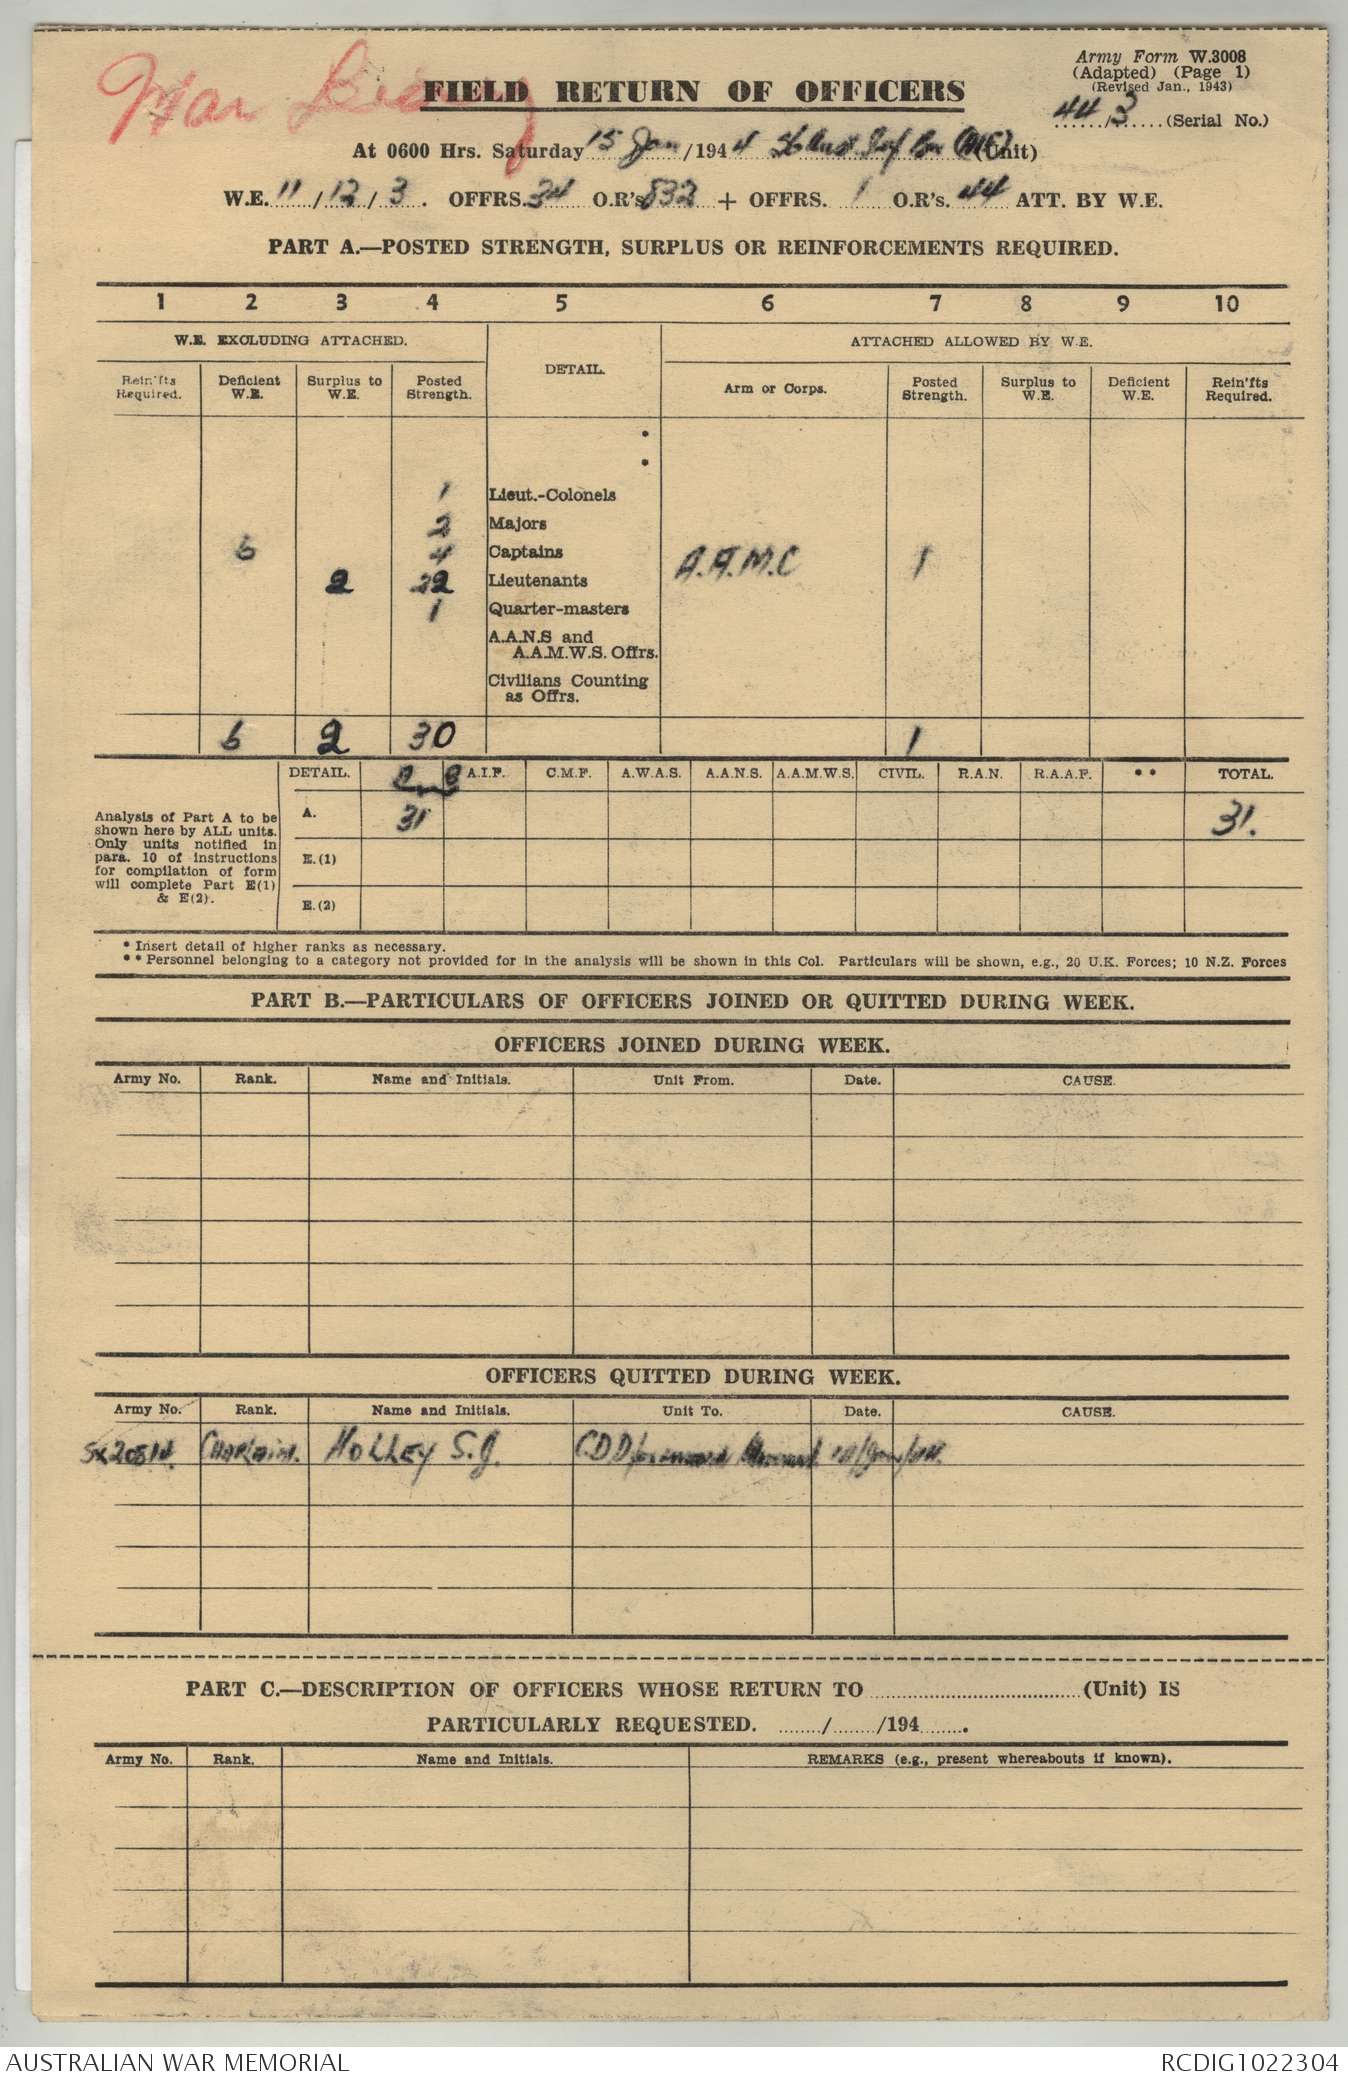 War Diary
Army Form W.3008
(Adapted) (Page 1)
(Revised Jan., 1943)
FIELD RETURN OF OFFICERS
44/3 (Serial No.)
At 0600 Hrs. Saturday 15 Jan /1944 36 Aust Inf Bn (AIF) (Unit)
W.E. 11 / 12 / 3 . OFFRS. 34 O.R's 832 + OFFRS. 1 O.R's. 44 ATT. BY W.E.
PART A.—POSTED STRENGTH, SURPLUS OR REINFORCEMENTS REQUIRED.
1 2 3 4 5 6 7 8 9 10
W.E. EXCLUDING ATTACHED. DETAIL. ATTACHED ALLOWED BY W.E.
Rein'fts Required. Deficient W.E. Surplus to W.E. Posted Strength. Arm or Corps. Posted Strength. Surplus to W.E. Deficient W.E. Rein'fts Required.
*
*
1 Lieut.-Colonels
2 Majors
6 4 Captains A.A.M.C 1
2 22 Lieutenants
1 Quarter-masters
A.A.N.S and
A.A.M.W.S. Offrs.
Civilians Counting
as Offrs.
6 2 30 1
DETAIL. A.I.F. C.M.F. A.W.A.S. A.A.N.S. A.A.M.W.S. CIVIL. R.A.N. R.A.A.F. * * TOTAL.
Analysis of Part A to be
shown here by ALL units.
Only units notified in
para. 10 of instructions
for compilation of form
will complete Part E(1)
& E(2).
A. 31 31.
E.(1)
E.(2)
* Insert detail of higher ranks as necessary.
* * Personnel belonging to a category not provided for in the analysis will be shown in this Col. Particulars will be shown, e.g., 20 U.K. Forces; 10 N.Z. Forces
PART B.—PARTICULARS OF OFFICERS JOINED OR QUITTED DURING WEEK.
OFFICERS JOINED DURING WEEK.
Army No. Rank. Name and Initials. Unit From. Date. CAUSE.
OFFICERS QUITTED DURING WEEK.
Army No. Rank. Name and Initials. Unit To. Date. CAUSE.
SX20514 CHAPLAIN. HOLLEY S.J. CDD
PART C.—DESCRIPTION OF OFFICERS WHOSE RETURN TO ............ (Unit) IS
PARTICULARLY REQUESTED. ......../......../194........
Army No. Rank. Name and Initials. REMARKS (e.g., present whereabouts if known).
AUSTRALIAN WAR MEMORIAL
RCDIG1022304